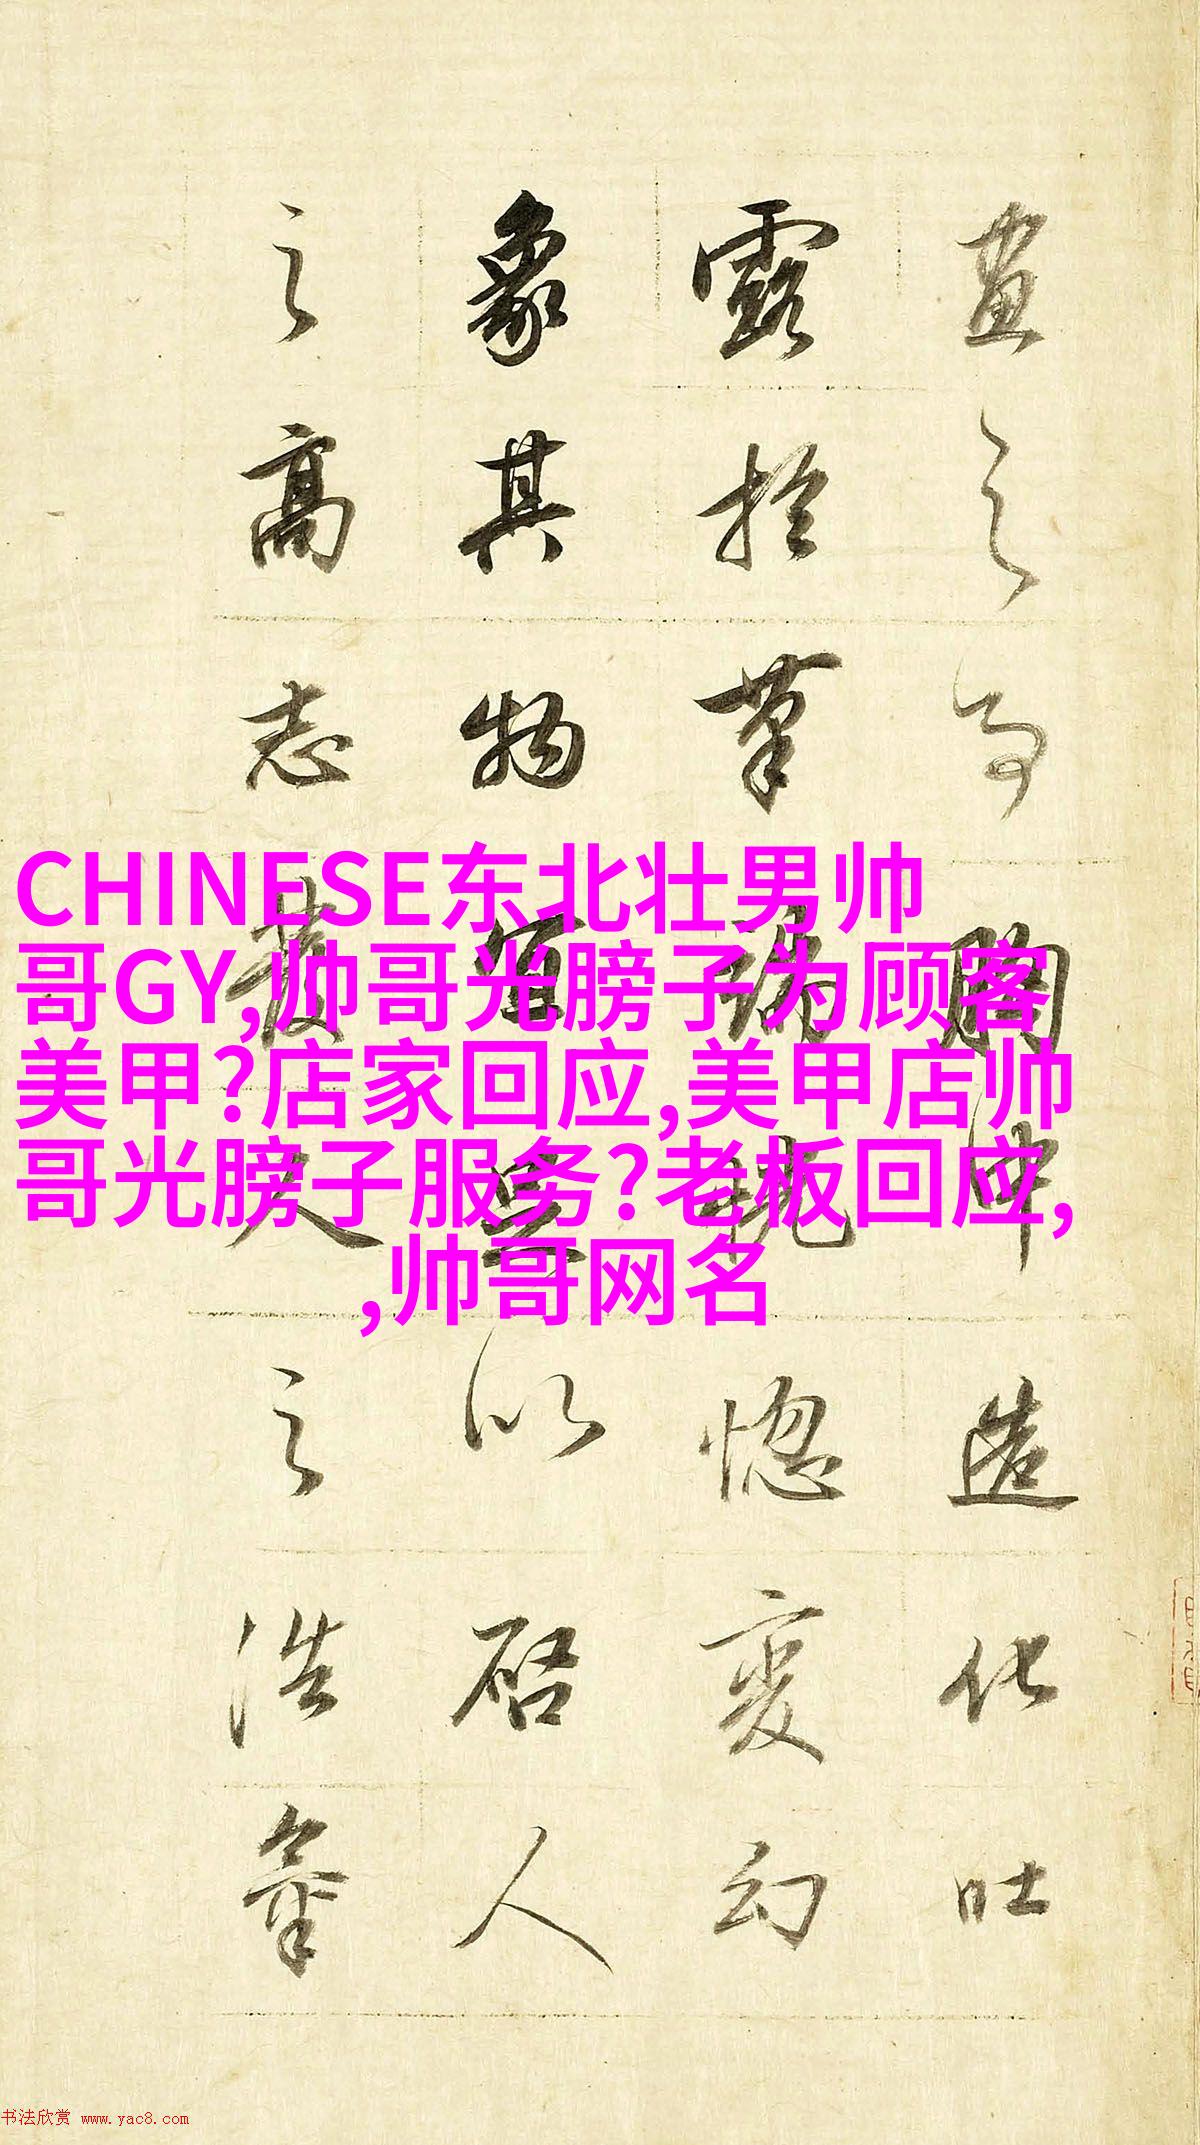 CHINESE东北壮男帅
哥GY,帅哥光膀子为顾客
美甲?店家回应,美甲店帅
哥光膀子服务?老板回应,
,帅哥网名
畫之胸中造化吐
露於筆端恍惚變幻
象其物宜足以啓人
之高志發人之浩氣
书法欣赏 www.yac8.com